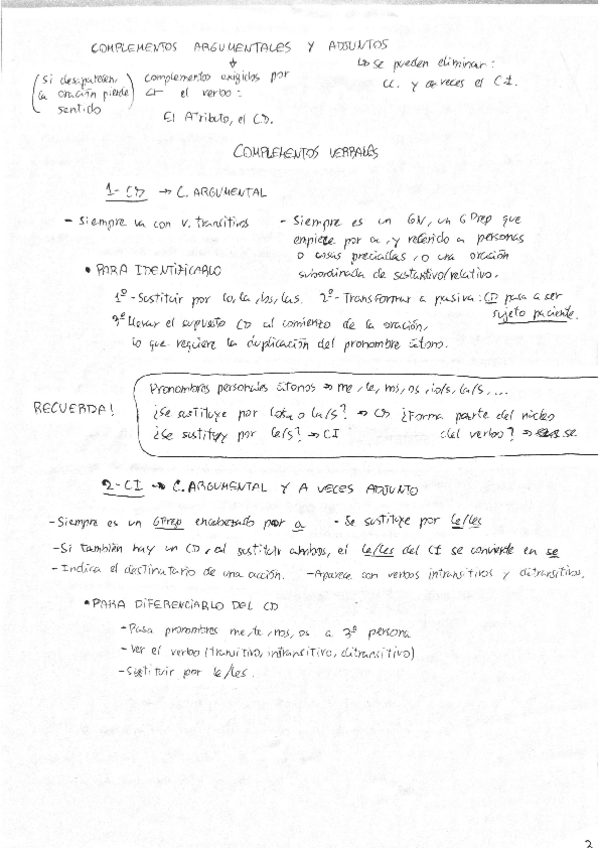 COMPLEMENTOS ARGUMENTALES Y ADJUNTOS
↳ se pueden eliminar:
CC. y a veces el CI.
(Si desaparecen, la oración pierde sentido)
complementos exigidos por
el verbo:
El Atributo, el CD.
COMPLEMENTOS VERBALES
1- CD → C. ARGUMENTAL
- Siempre va con v. transitivos
- Siempre es un GN, un GPrep que
empiece por a, y referido a personas
o cosas , o una oración
subordinada de sustantivo/relativo.
• PARA IDENTIFICARLO
1º- Sustituir por lo, la, los, las. 2º- Transformar a pasiva: CD pasa a ser
sujeto paciente.
3º Llevar el supuesto CD al comienzo de la oración,
lo que requiere la duplicación del pronombre átono.
RECUERDA!
Pronombres personales átonos → me, te, nos, os, lo/s, la/s, ...
¿Se sustituye por lo/s o la/s? → CD ¿Forma parte del núcleo
¿Se sustituye por le/s? → CI del verbo? → se
2- CI → C. ARGUMENTAL Y A VECES ADJUNTO
- Siempre es un GPrep encabezado por a - Se sustituye por le/les
- Si también hay un CD, al sustituir ambos, el le/les del CI se convierte en se
- Indica el destinatario de una acción. - Aparece con verbos intransitivos y ditransitivos.
• PARA DIFERENCIARLO DEL CD
- Pasa pronombres me, te, nos, os a 3ª persona
- Ver el verbo (transitivo, intransitivo, ditransitivo)
- Sustituir por le/les.
2